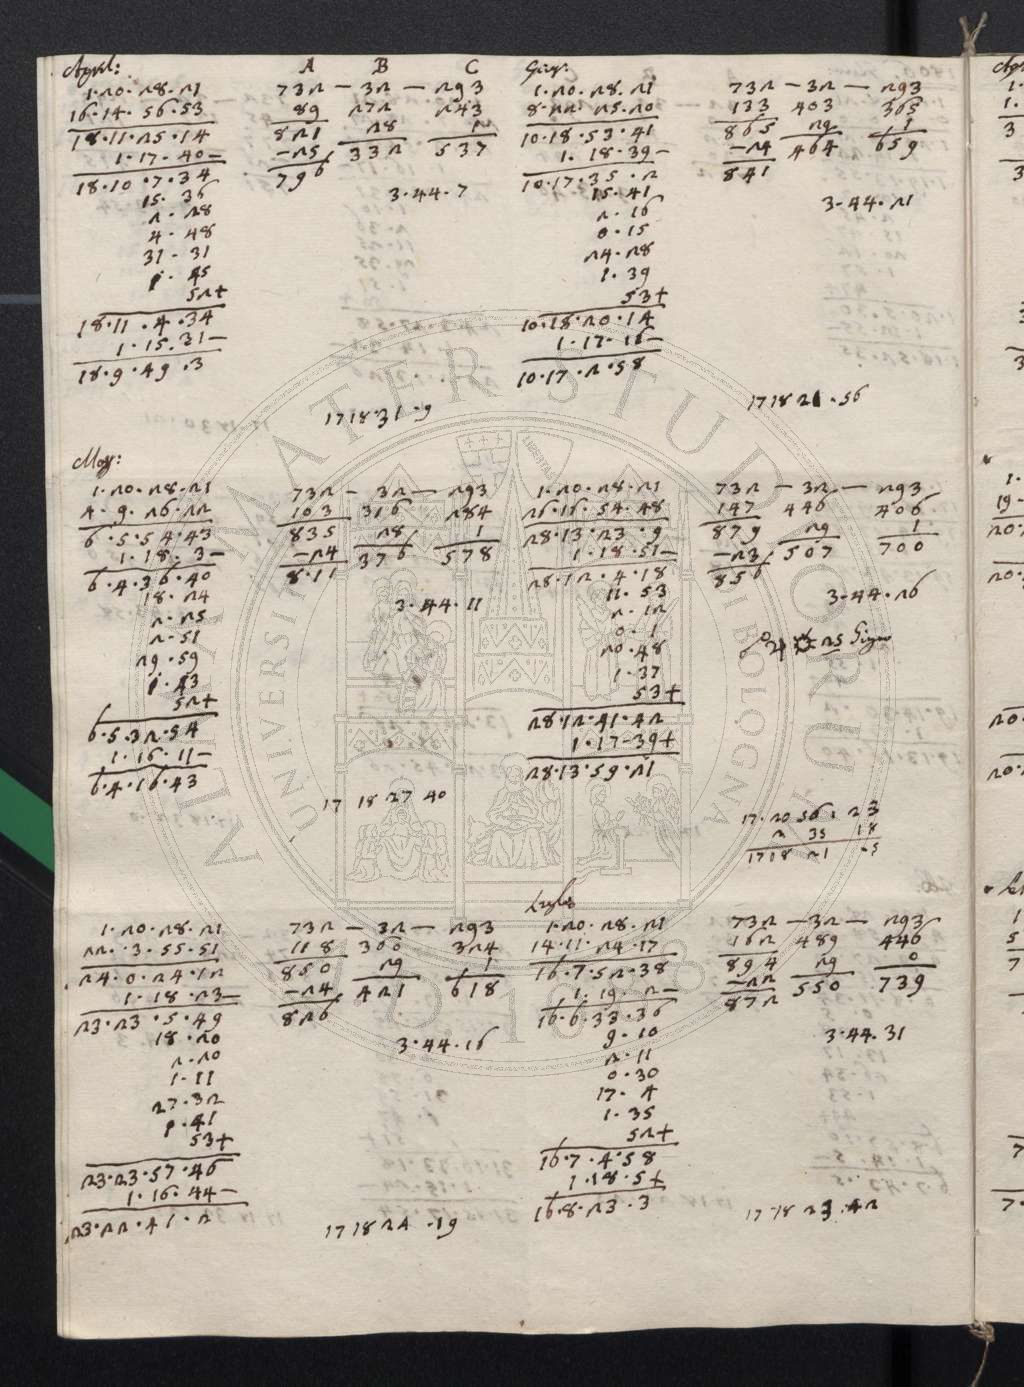 Aprl:
1·20·28·21
16·14·56·53
18·11·25·14
1·17·40—
18·10·7·34
15·36
2·28
4·48
31·31
1·45
52+
18·11·4·34
1·15·31—
18·9·49·3
A B C
732 — 32 — 293
89 272 243
821 28 1
—25 332 537
796
3·44·7
17 18 31·9
Giug:
1·20·28·21
8·22·25·20
10·18·53·41
1·18·39—
10·17·35·2
15·41
2·16
0·15
24·28
1·39
53+
10·18·20·14
1·17·16—
10·17·2·58
732 — 32 — 293
133 403 365
865 29 1
—24 464 659
841
3·44·21
17 18 21·56
Mag:
1·20·28·21
4·9·26·22
6·5·54·43
1·18·3—
6·4·36·40
18·24
2·25
2·51
29·59
1·43
52+
6·5·32·54
1·16·11—
6·4·16·43
732 — 32 — 293
103 316 284
835 28 1
—24 376 578
811
3·44·11
17 18 27 40
1·20·28·21
26·16·54·48
28·13·23·9
1·18·51—
28·12·4·18
11·53
2·12
0·1
20·48
1·37
53+
28·12·41·42
1·17·39+
28·13·59·21
732 — 32 — 293
147 446 406
879 29 1
—23 507 700
856
3·44·26
☍ ♃ ☼ 25 Giugn
17·20 56·23
2 35 18
17 18 21 ·5
1·20·28·21
22·3·55·51
24·0·24·12
1·18·23—
23·23·5·49
18·20
2·20
1·11
27·32
1·41
53+
23·23·57·46
1·16·44—
23·22·41·2
732 — 32 — 293
118 360 324
850 29 1
—24 421 618
826
3·44·16
17 18 24·19
Luglio
1·20·28·21
14·11·24·17
16·7·52·38
1·19·2—
16·6·33·36
9·10
2·11
0·30
17·4
1·35
52+
16·7·4·58
1·18·5+
16·8·23·3
732 — 32 — 293
162 489 446
894 29 0
—22 550 739
872
3·44·31
17 18 23·42